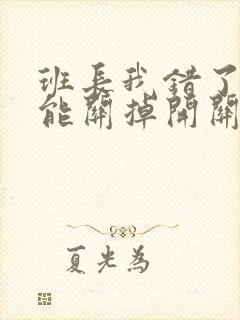 班長我錯了
能關掉開關
夏光為